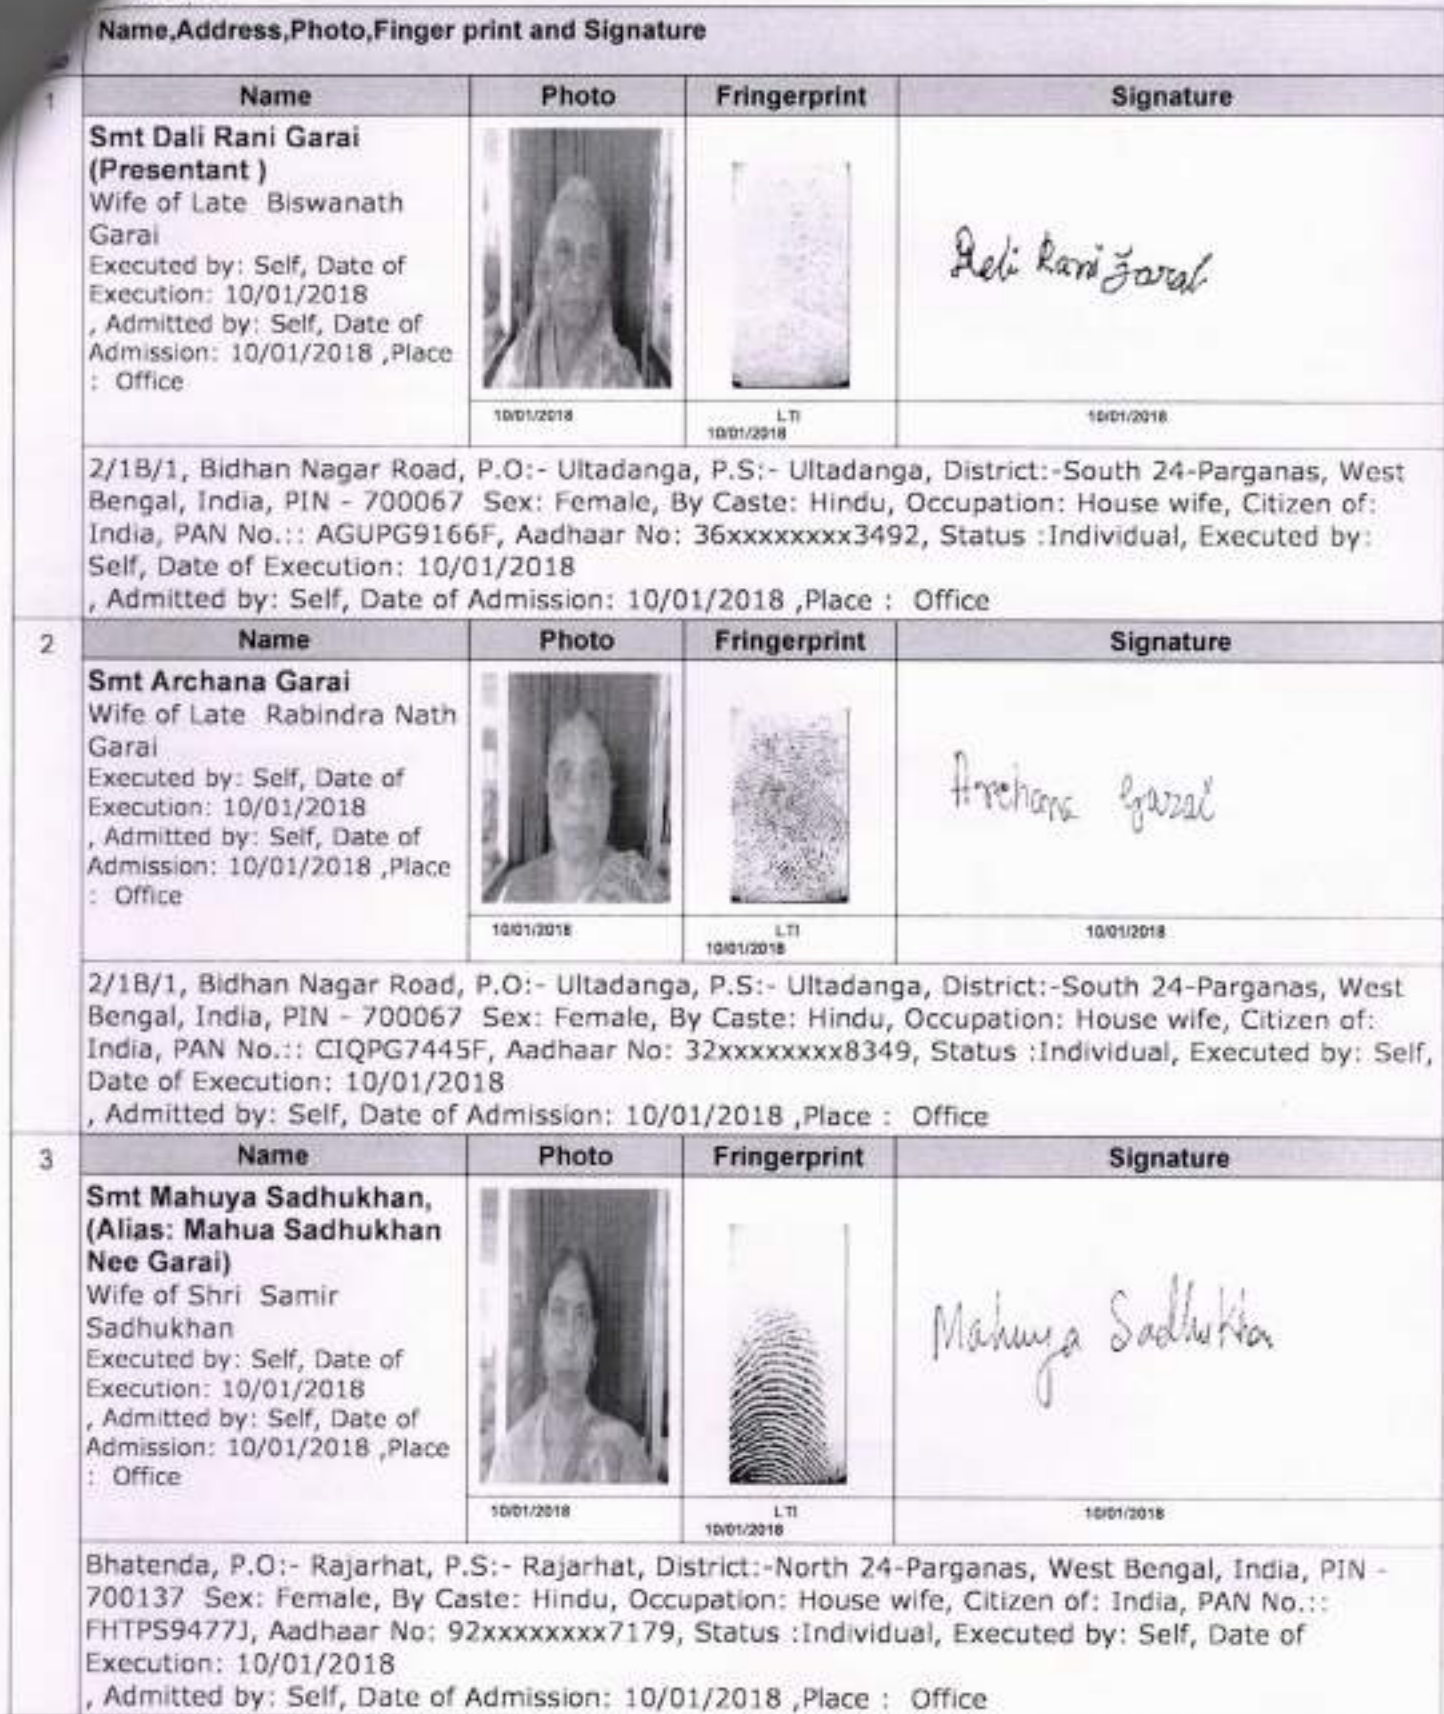 Name,Address,Photo,Finger print and Signature
1
Name Photo Fringerprint Signature
Smt Dali Rani Garai
(Presentant )
Wife of Late Biswanath
Garai
Executed by: Self, Date of
Execution: 10/01/2018
, Admitted by: Self, Date of
Admission: 10/01/2018 ,Place
: Office
Rani Garai
10/01/2018 LTI 10/01/2018
10/01/2018
2/1B/1, Bidhan Nagar Road, P.O:- Ultadanga, P.S:- Ultadanga, District:-South 24-Parganas, West
Bengal, India, PIN - 700067 Sex: Female, By Caste: Hindu, Occupation: House wife, Citizen of:
India, PAN No.:: AGUPG9166F, Aadhaar No: 36xxxxxxxx3492, Status :Individual, Executed by:
Self, Date of Execution: 10/01/2018
, Admitted by: Self, Date of Admission: 10/01/2018 ,Place : Office
2
Name Photo Fringerprint Signature
Smt Archana Garai
Wife of Late Rabindra Nath
Garai
Executed by: Self, Date of
Execution: 10/01/2018
, Admitted by: Self, Date of
Admission: 10/01/2018 ,Place
: Office
Archana Garai
10/01/2018 LTI 10/01/2018
10/01/2018
2/1B/1, Bidhan Nagar Road, P.O:- Ultadanga, P.S:- Ultadanga, District:-South 24-Parganas, West
Bengal, India, PIN - 700067 Sex: Female, By Caste: Hindu, Occupation: House wife, Citizen of:
India, PAN No.:: CIQPG7445F, Aadhaar No: 32xxxxxxxx8349, Status :Individual, Executed by: Self,
Date of Execution: 10/01/2018
, Admitted by: Self, Date of Admission: 10/01/2018 ,Place : Office
3
Name Photo Fringerprint Signature
Smt Mahuya Sadhukhan,
(Alias: Mahua Sadhukhan
Nee Garai)
Wife of Shri Samir
Sadhukhan
Executed by: Self, Date of
Execution: 10/01/2018
, Admitted by: Self, Date of
Admission: 10/01/2018 ,Place
: Office
Mahuya Sadhukhan
10/01/2018 LTI 10/01/2018
10/01/2018
Bhatenda, P.O:- Rajarhat, P.S:- Rajarhat, District:-North 24-Parganas, West Bengal, India, PIN -
700137 Sex: Female, By Caste: Hindu, Occupation: House wife, Citizen of: India, PAN No.::
FHTPS9477J, Aadhaar No: 92xxxxxxxx7179, Status :Individual, Executed by: Self, Date of
Execution: 10/01/2018
, Admitted by: Self, Date of Admission: 10/01/2018 ,Place : Office